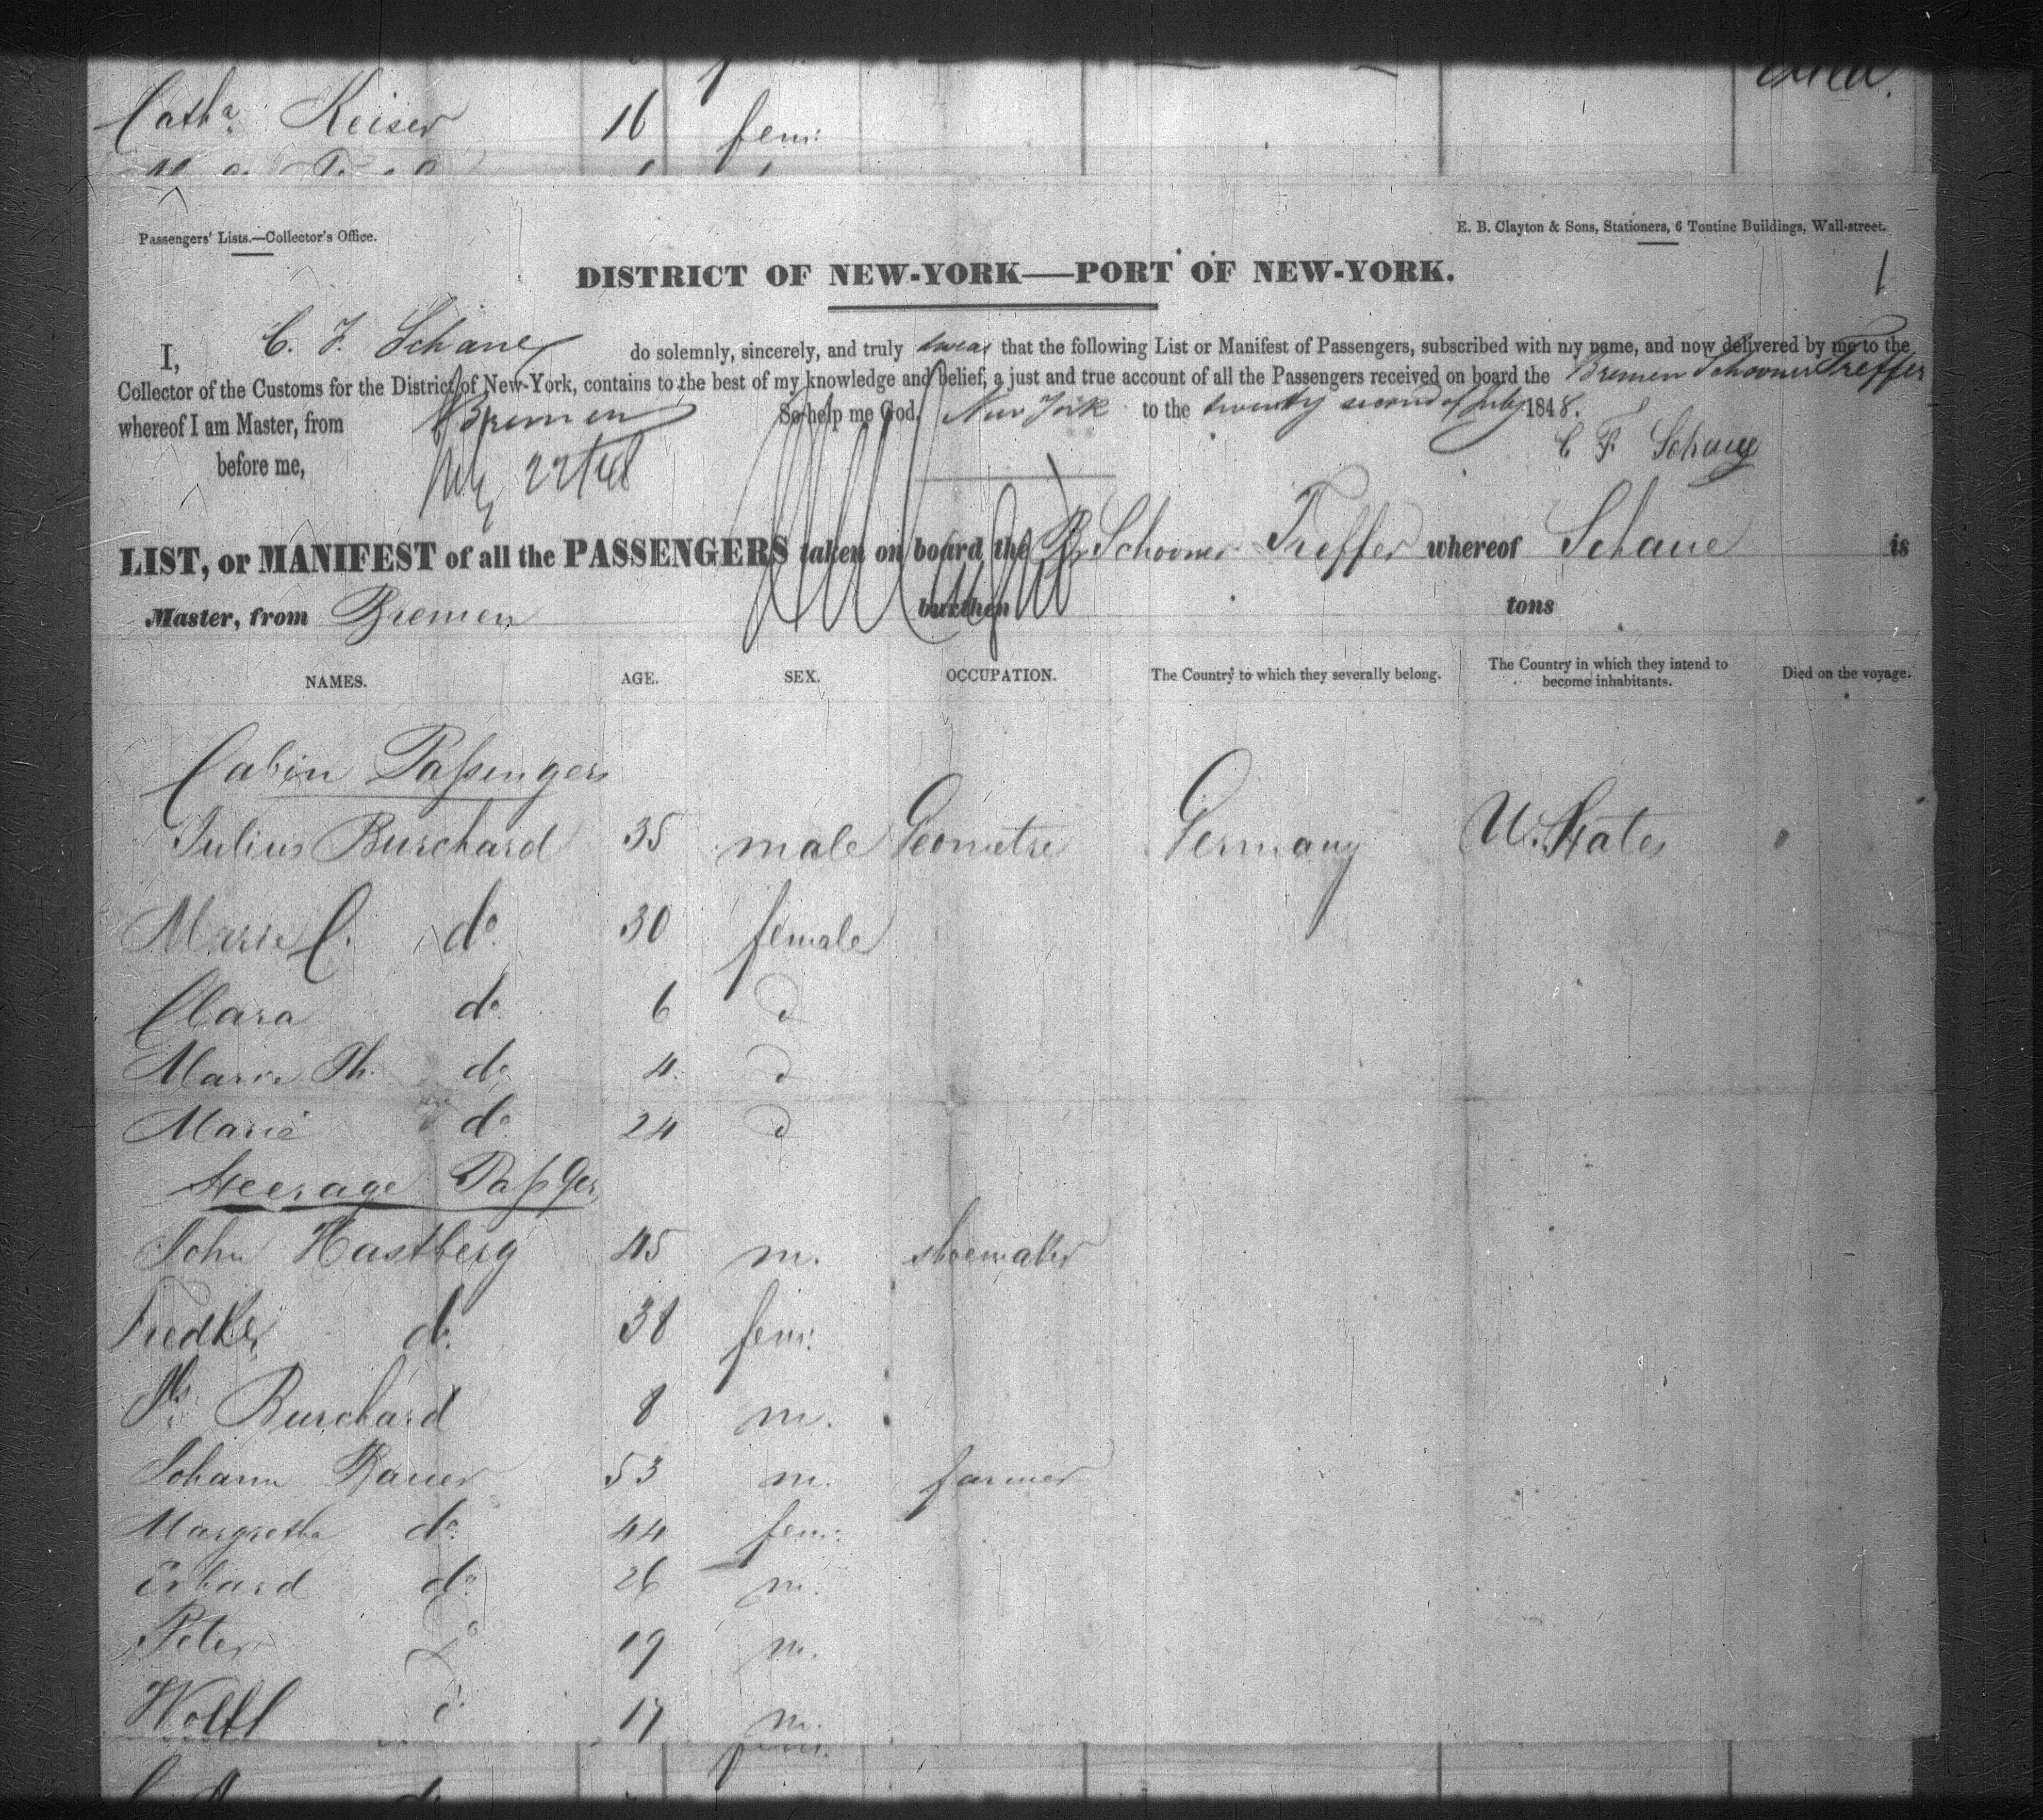 Cath.a Keiser 16 fem:
Passengers' Lists.—Collector's Office.
E. B. Clayton & Sons, Stationers, 6 Tontine Buildings, Wall-street.
1
DISTRICT OF NEW-YORK——PORT OF NEW-YORK.
I, C. F. Schaue do solemnly, sincerely, and truly swear that the following List or Manifest of Passengers, subscribed with my name, and now delivered by me to the
Collector of the Customs for the District of New-York, contains to the best of my knowledge and belief, a just and true account of all the Passengers received on board the Bremen Schooner Treffer
whereof I am Master, from Bremen to the New York twenty second of July 1848.
So help me God.
C F Schaue
before me, July 22
LIST, or MANIFEST of all the PASSENGERS taken on board the Br Schooner Treffer whereof Schaue is
Master, from Bremen burthen tons
NAMES. AGE. SEX. OCCUPATION. The Country to which they severally belong. The Country in which they intend to become inhabitants. Died on the voyage.
Cabin Passengers
Julius Burchard 35 male Geometre Germany U. States
Marie C. do. 30 female
Clara do. 6 d
Marie Th. do. 4. d
Marie do. 24 d
Steerage Passger
John Hastberg 45 m. shoemaker
Fredke do. 38 fem:
Burchard 8 m.
Johann Bauer 53 m. farmer
Margretha do. 44 fem:
Erhard do. 26 m.
Peter do 19 m.
Wolff d. 17 m.